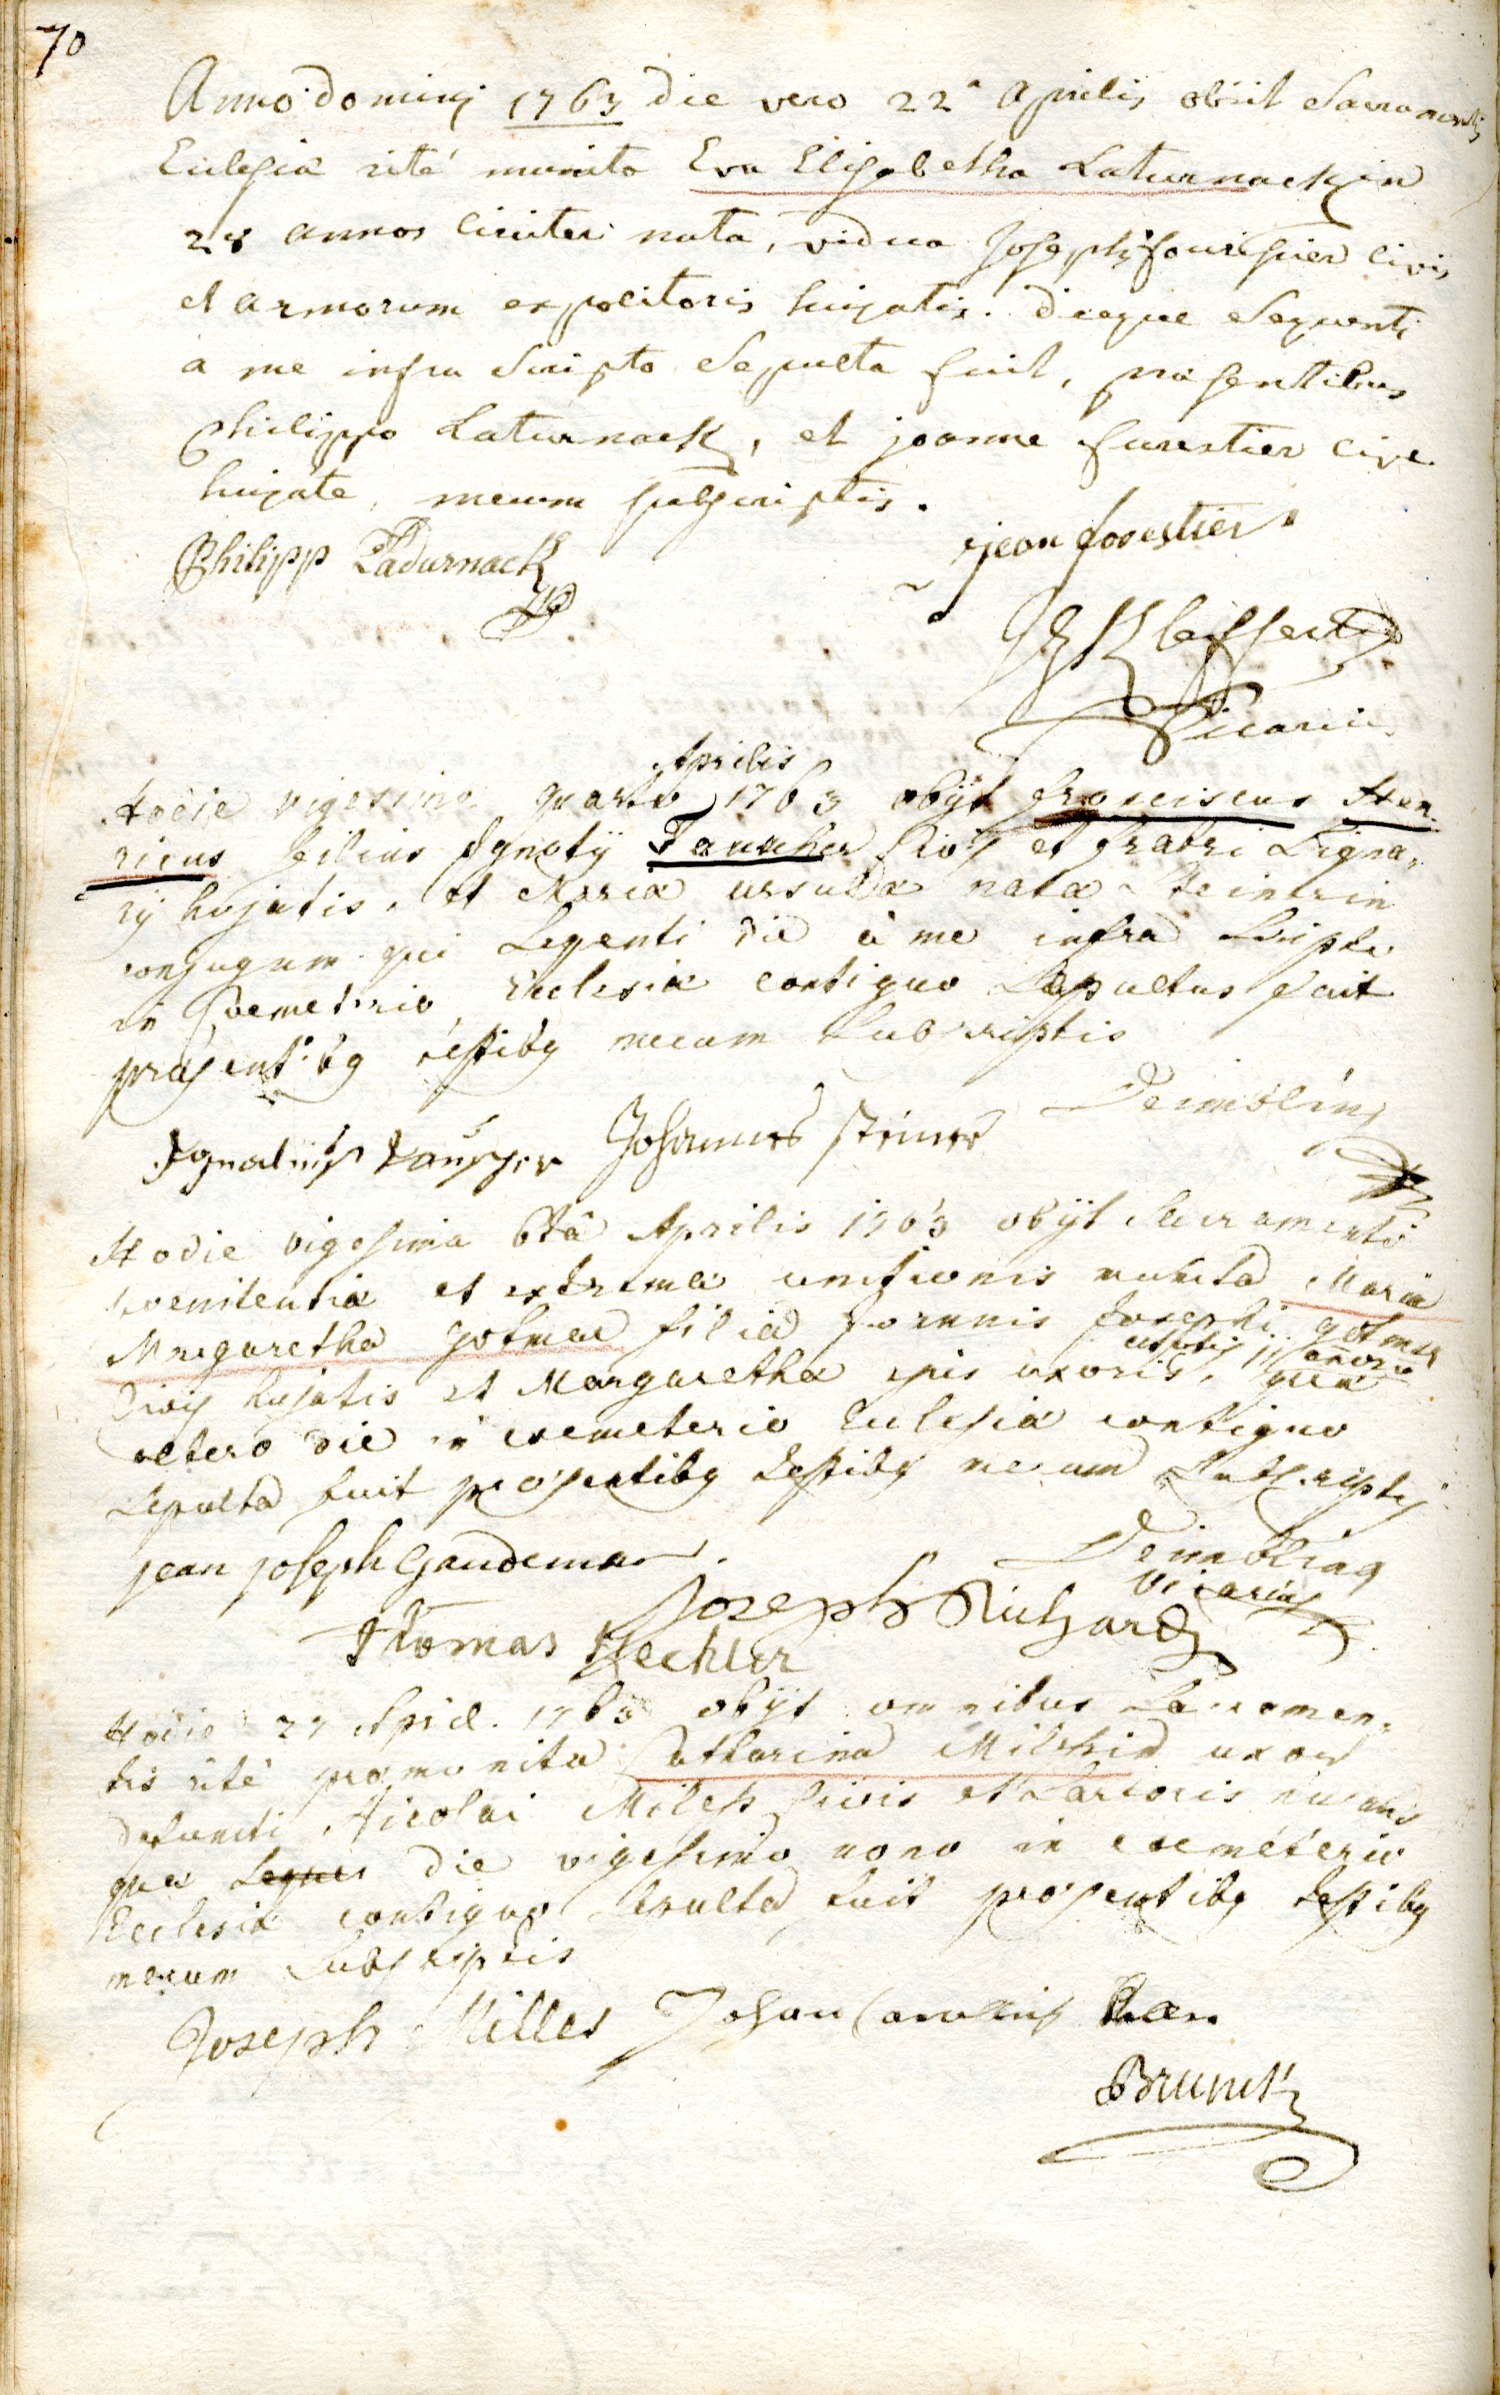 70
Anno domini 1763 die vero 22a Aprilis obiit Sacramentis
Ecclesiæ rité munita Eva Elisabetha Laturnackin
28 annos circiter nata, vidua Josephi fourissier civis
et armorum expolitoris hujatis. dieque Sequenti
a me infra Scripto Sepulta fuit, præsentibus
Philippo Laturnack, et joanne furestier cive
hujate, mecum subscriptis.
Philipp Ladurnack
jean forestier
Kleffert
Vicarius
Aprilis
Hodie vigesima quarta 1763 obijt franciscus Hen-
ricus filius Ignatij Tauscher Civis et fabri Ligna-
rij hujatis, et Mariæ ursulæ natæ Steinerin
conjugum qui Sequenti die à me infra Scripto
in Coemeterio Ecclesiæ contiguo Sepultus fuit
præsentibg testibg mecum Subscriptis
Deimbling
Ignatius Tauscher Johannes steiner
Hodie vigesima 6tâ Aprilis 1763 obijt Sacramento
poenitentiæ et extremæ unctionis munita Maria
Margaretha gotmar filia Joannis Josephi gotmar
ætatis 11 annorum
Civis hujatis et Margarethæ ejus uxoris, quæ
altero die in coemeterio Eclesiæ contiguo
Sepulta fuit præsentibg testibg mecum Subscriptis
jean joseph Gaudemar.
Deimbling
Vicarius
Joseph Richard
Thomas Hechler
Hodie 27 April. 1763 obijt omnibus Sacramen-
tis rité præmunita Catharina Milshin uxor
defuncti Nicolai Miless Civis et Sartoris hujatis
quæ die vigesimo nono in coemeterio
Ecclesiæ contiguo Sepulta fuit præsentibg testibg
mecum Subscriptis
Joseph Milles Johan Carollus
Brunck